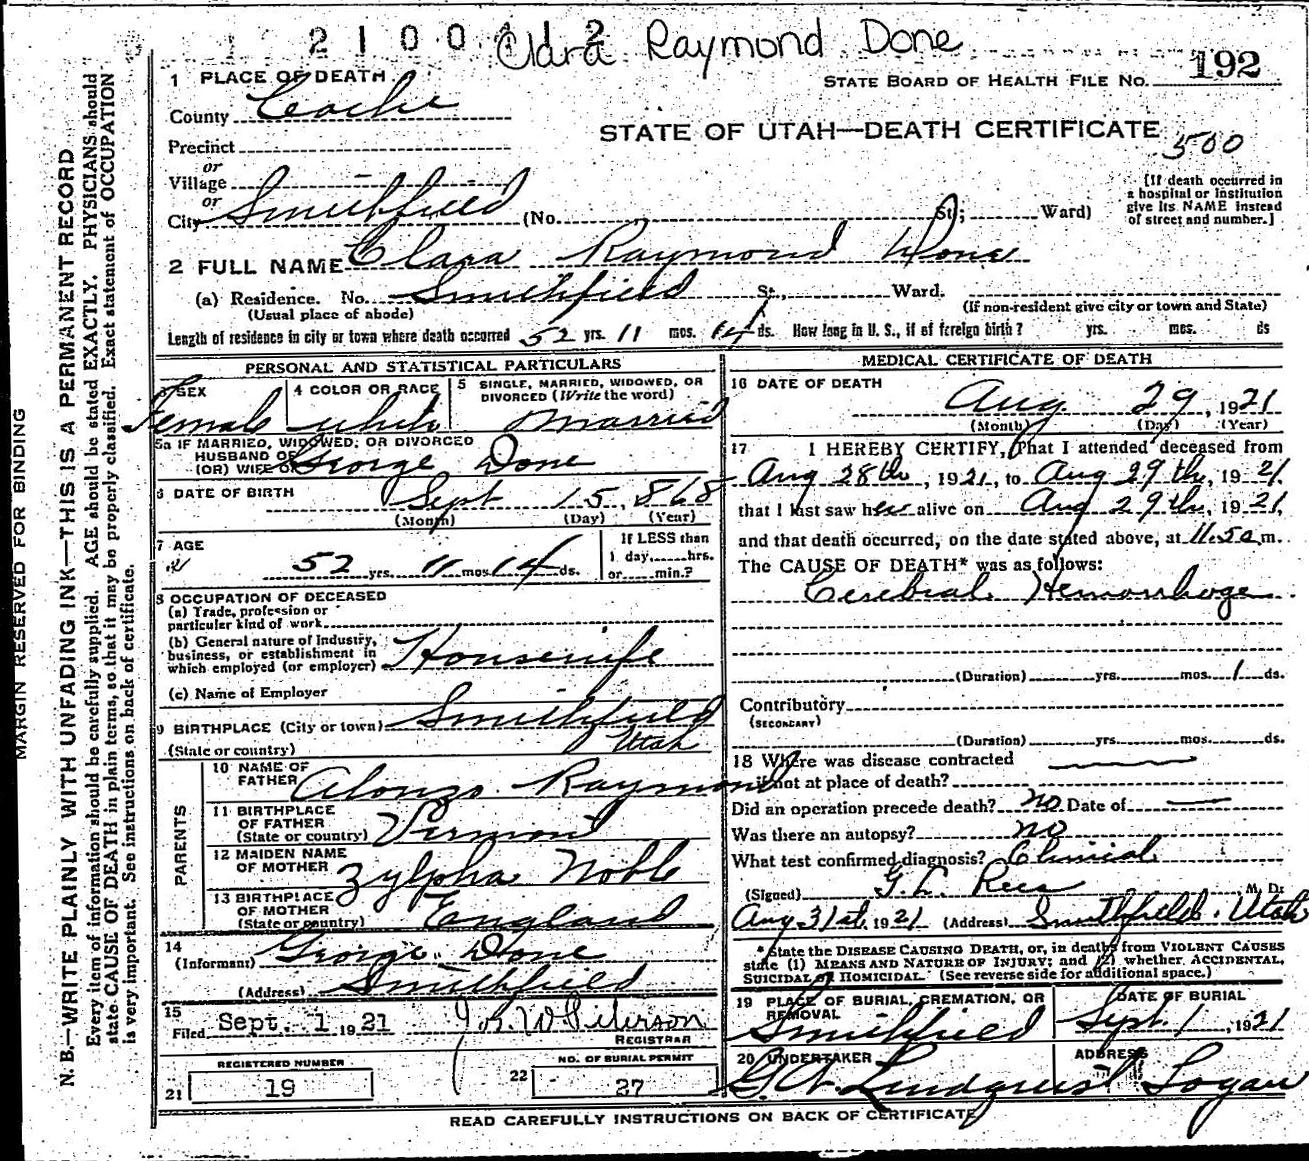 2 1 0 0 1 2 Clara Raymond Done
1 PLACE OF DEATH
STATE BOARD OF HEALTH FILE NO. 192
County Cache
STATE OF UTAH—DEATH CERTIFICATE
500
Precinct
or
Village
or
City Smithfield (No. St; Ward)
[If death occurred in
a hospital or institution
give its NAME instead
of street and number.]
2 FULL NAME Clara Raymond Done
(a) Residence. No. Smithfield St., Ward.
(Usual place of abode) (If non-resident give city or town and State)
Length of residence in city or town where death occurred 52 yrs. 11 mos. 14 ds. How long in U. S., if of foreign birth? yrs. mos. ds
PERSONAL AND STATISTICAL PARTICULARS
3 SEX Female
4 COLOR OR RACE white
5 SINGLE, MARRIED, WIDOWED, OR
DIVORCED (Write the word)
Married
5a IF MARRIED, WIDOWED, OR DIVORCED
HUSBAND OF
(OR) WIFE OF George Done
6 DATE OF BIRTH Sept 15, 1868
(Month) (Day) (Year)
7 AGE
52 yrs. 11 mos. 14 ds.
If LESS than
1 day,......hrs.
or......min.?
8 OCCUPATION OF DECEASED
(a) Trade, profession or
particular kind of work
(b) General nature of Industry,
business, or establishment in
which employed (or employer) Housewife
(c) Name of Employer
9 BIRTHPLACE (City or town) Smithfield
(State or country) Utah
PARENTS
10 NAME OF
FATHER Alonzo Raymond
11 BIRTHPLACE
OF FATHER
(State or country) Vermont
12 MAIDEN NAME
OF MOTHER Zylpha Noble
13 BIRTHPLACE
OF MOTHER
(State or country) England
14
(Informant) George Done
(Address) Smithfield
15
Filed Sept. 1 1921 Jos. W. Peterson
REGISTRAR
REGISTERED NUMBER
21 19
NO. OF BURIAL PERMIT
22 27
MEDICAL CERTIFICATE OF DEATH
16 DATE OF DEATH
Aug 29, 1921
(Month) (Day) (Year)
17 I HEREBY CERTIFY, That I attended deceased from
Aug 28th, 1921, to Aug 29th, 1921.
that I last saw her alive on Aug 29th, 1921,
and that death occurred, on the date stated above, at 11.50 m.
The CAUSE OF DEATH* was as follows:
Cerebral Hemorrhage
(Duration) yrs. mos. 1 ds.
Contributory
(SECONDARY)
(Duration) yrs. mos. ds.
18 Where was disease contracted
if not at place of death?
Did an operation precede death? no Date of
Was there an autopsy? no
What test confirmed diagnosis? Clinical
(Signed) G. L. Rees M. D.
Aug 31st, 1921 (Address) Smithfield, Utah
* State the DISEASE CAUSING DEATH, or, in deaths from VIOLENT CAUSES
state (1) MEANS AND NATURE OF INJURY; and (2) whether ACCIDENTAL,
SUICIDAL OR HOMICIDAL. (See reverse side for additional space.)
19 PLACE OF BURIAL, CREMATION, OR
REMOVAL
Smithfield
DATE OF BURIAL
Sept. 1, 1921
20 UNDERTAKER
G. W. Lindquist
ADDRESS
Logan
READ CAREFULLY INSTRUCTIONS ON BACK OF CERTIFICATE
MARGIN RESERVED FOR BINDING
N. B.—WRITE PLAINLY WITH UNFADING INK—THIS IS A PERMANENT RECORD
Every item of information should be carefully supplied. AGE should be stated EXACTLY. PHYSICIANS should
state CAUSE OF DEATH in plain terms, so that it may be properly classified. Exact statement of OCCUPATION
is very important. See instructions on back of certificate.